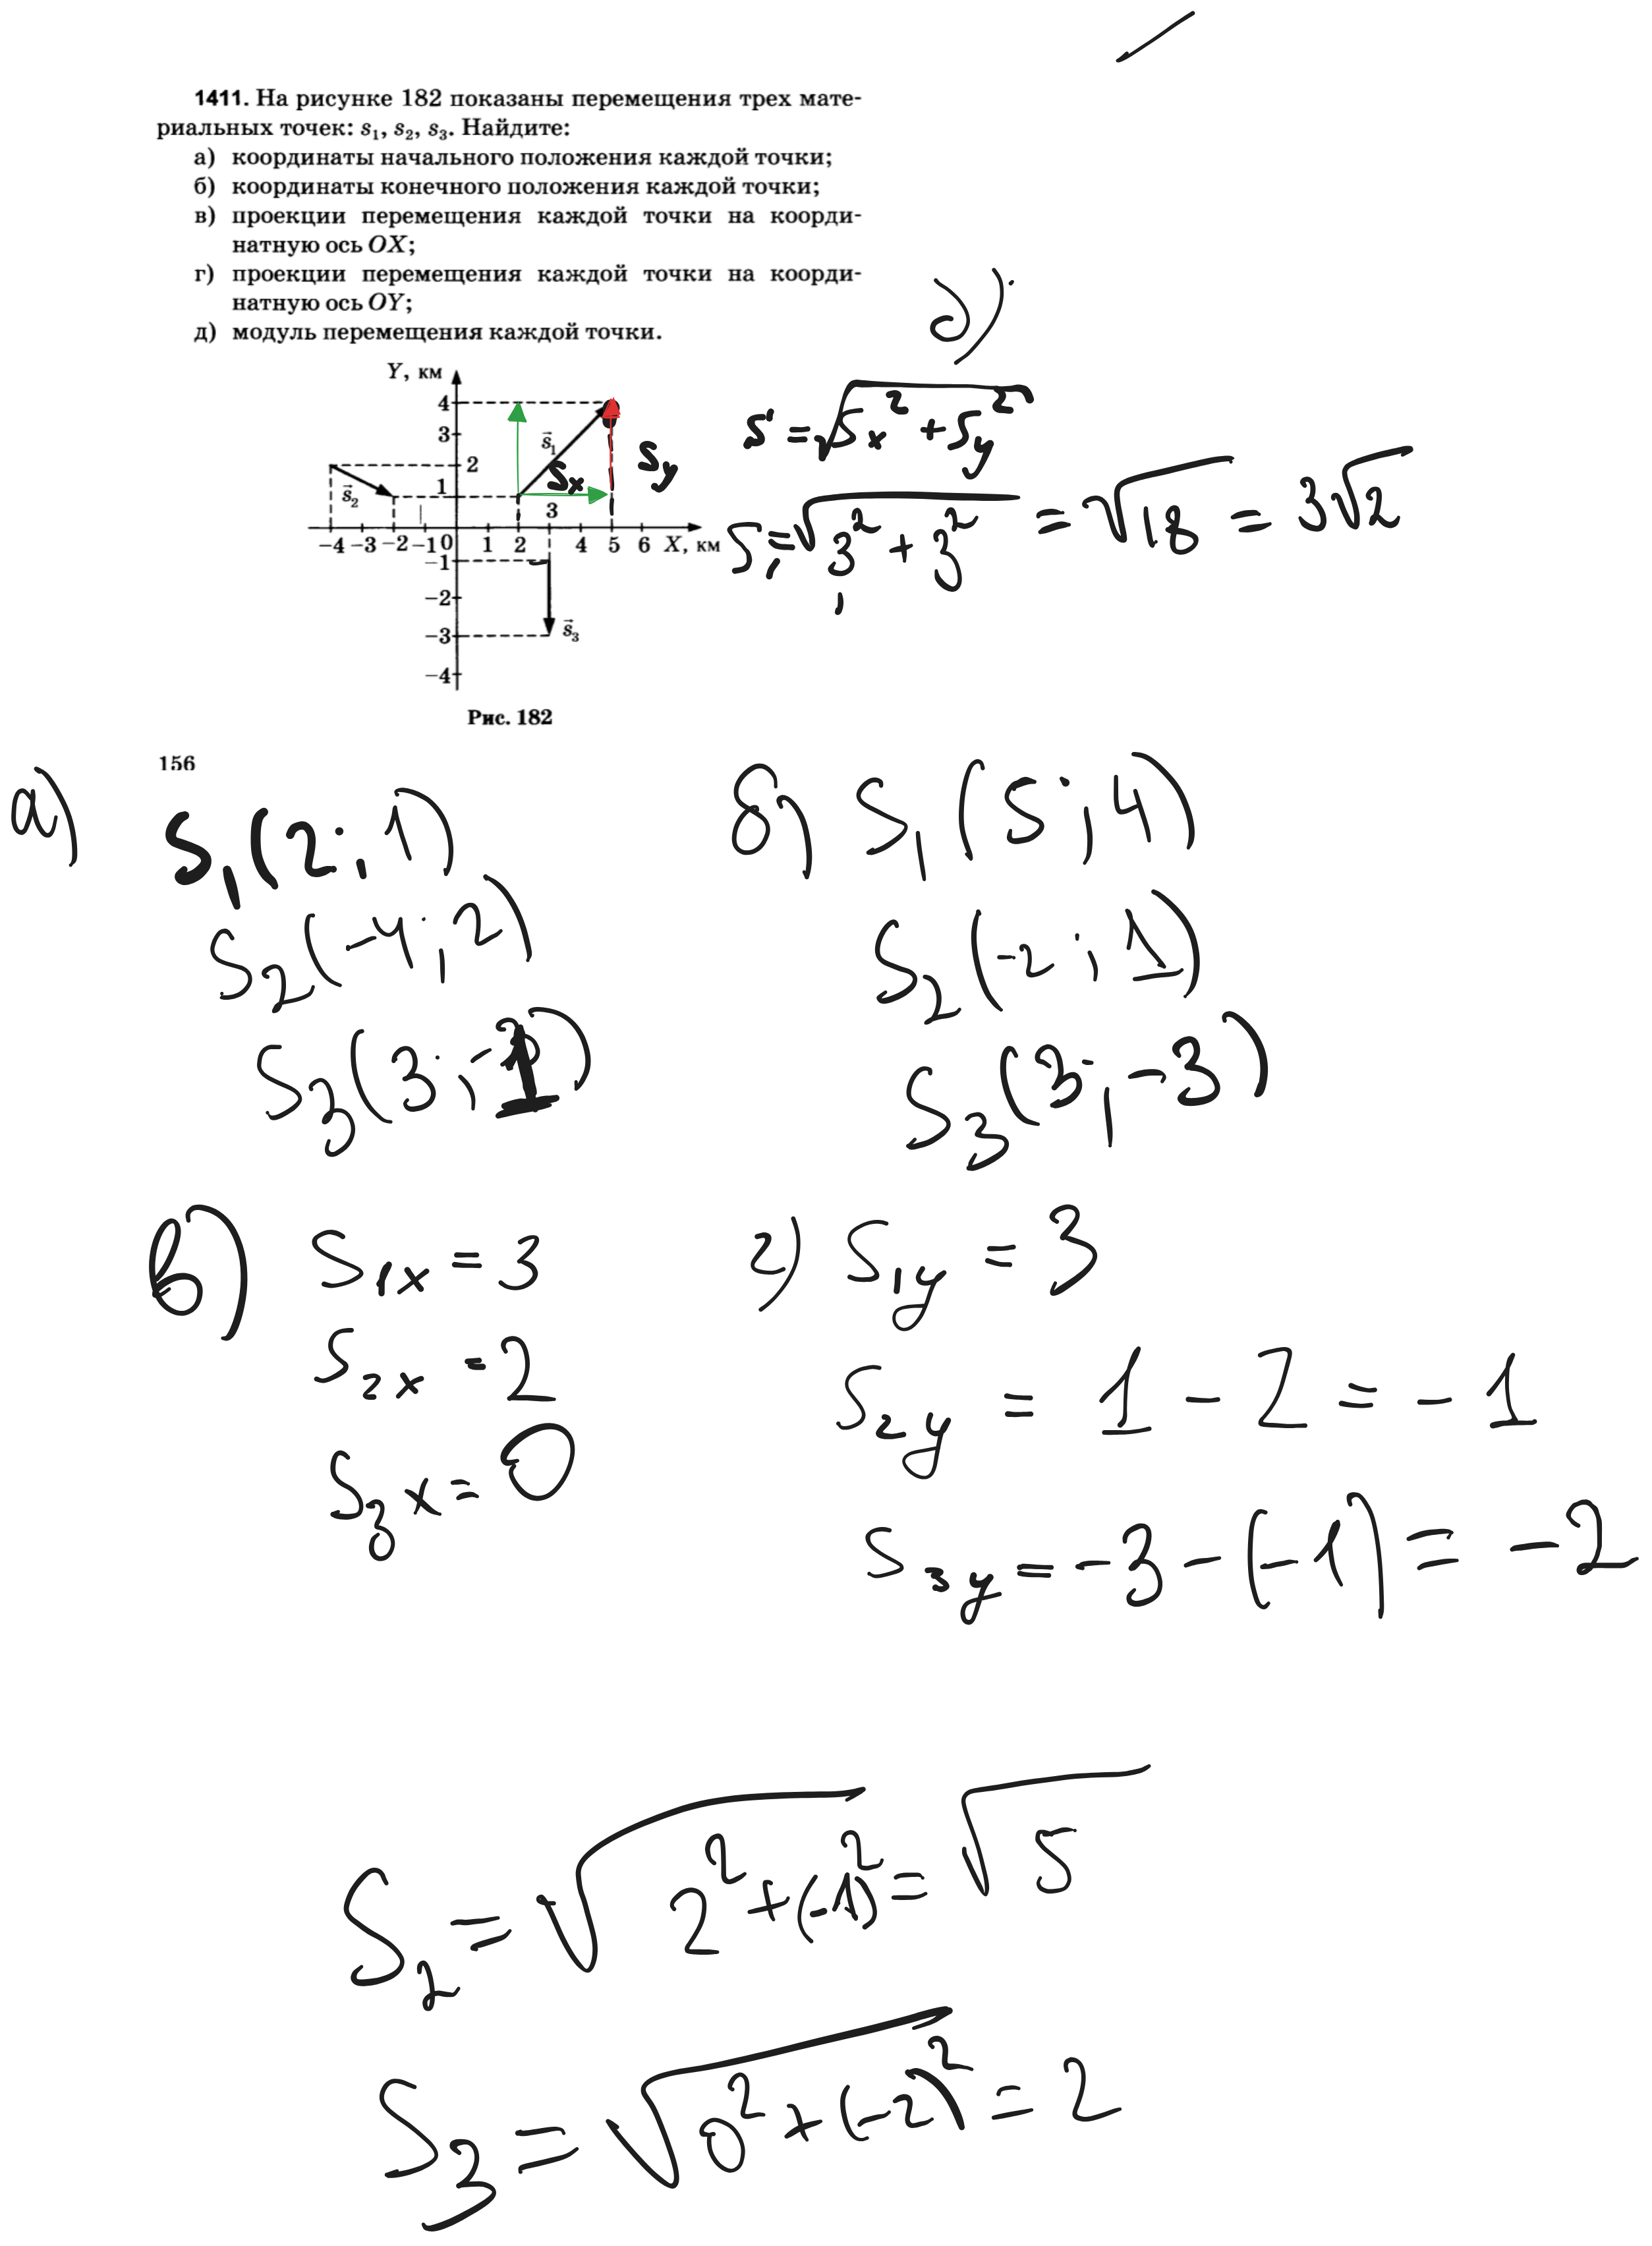 1411. На рисунке 182 показаны перемещения трех мате-
риальных точек: s₁, s₂, s₃. Найдите:
а) координаты начального положения каждой точки;
б) координаты конечного положения каждой точки;
в) проекции перемещения каждой точки на коорди-
натную ось OX;
г) проекции перемещения каждой точки на коорди-
натную ось OY;
д) модуль перемещения каждой точки.
д)
Y, км
4
3
2
1
s⃗₁
s⃗₂
Sx
Sy
3
-4 -3 -2 -1 0 1 2 4 5 6 X, км
-1
-2
-3
s⃗₃
-4
Рис. 182
S = √(Sx² + Sy²)
S₁ = √(3² + 3²) = √18 = 3√2
156
а) S₁(2; 1)
S₂(-4; 2)
S₃(3; -1)
б) S₁(5; 4)
S₂(-2; 1)
S₃(3; -3)
в) S₁x = 3
S₂x = 2
S₃x = 0
г) S₁y = 3
S₂y = 1 - 2 = -1
S₃y = -3 - (-1) = -2
S₂ = √(2² + (-1)²) = √5
S₃ = √(0² + (-2)²) = 2